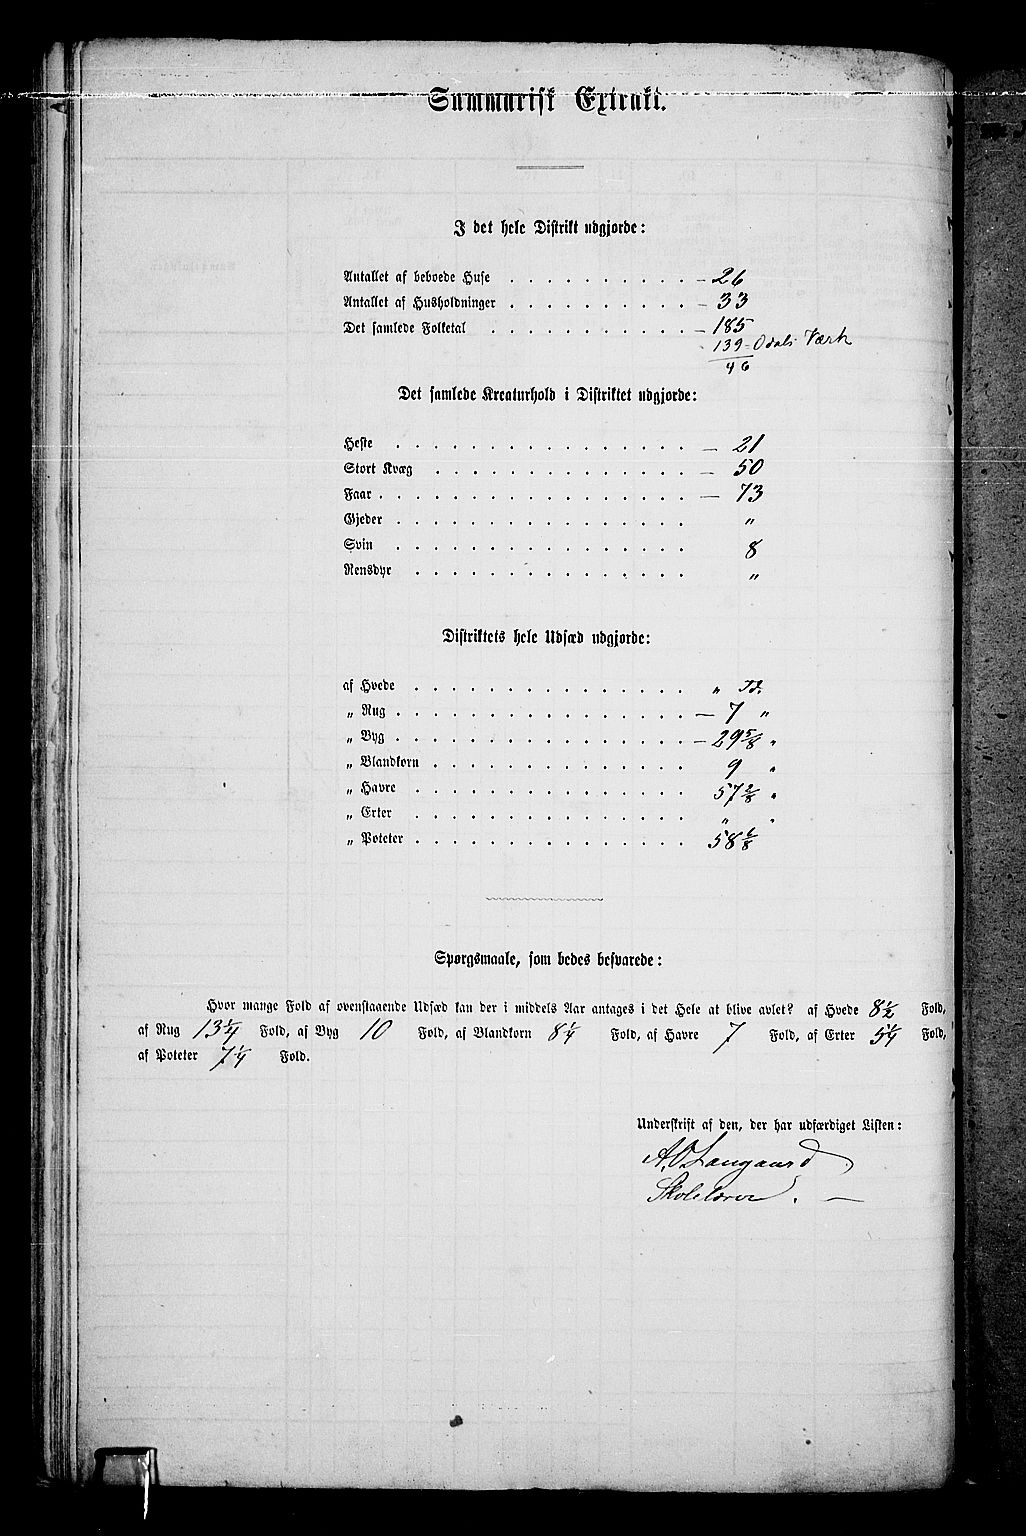 Summarisk Extrakt.
I det hele Distrikt udgjorde:
Antallet af beboede Huse . . . . . . . . . . — 26
Antallet af Husholdninger . . . . . . . . . . — 33
Det samlede Folketal . . . . . . . . . . . — 185
139 - Odals Værk
46
Det samlede Kreaturhold i Distriktet udgjorde:
Heste . . . . . . . . . . . . . . . . — 21
Stort Kvæg . . . . . . . . . . . . . . — 50
Faar . . . . . . . . . . . . . . . . . — 73
Gjeder . . . . . . . . . . . . . . . . „
Svin . . . . . . . . . . . . . . . . 8
Rensdyr . . . . . . . . . . . . . . . „
Distriktets hele Udsæd udgjorde:
af Hvede . . . . . . . . . . . . . . . „ Td.
„ Rug . . . . . . . . . . . . . . . . — 7 „
„ Byg . . . . . . . . . . . . . . . . — 29 5/8 „
„ Blandkorn . . . . . . . . . . . . . . 9 „
„ Havre . . . . . . . . . . . . . . . 57 2/8 „
„ Erter . . . . . . . . . . . . . . . „ „
„ Poteter . . . . . . . . . . . . . . . 58 6/8
Spørgsmaale, som bedes besvarede:
Hvor mange Fold af ovenstaaende Udsæd kan der i middels Aar antages i det Hele at blive avlet? af Hvede 8 1/2 Fold,
af Rug 13 1/4 Fold, af Byg 10 Fold, af Blandkorn 8 1/4 Fold, af Havre 7 Fold, af Erter 5 1/4 Fold,
af Poteter 7 1/4 Fold.
Underskrift af den, der har udfærdiget Listen:
A. O. Langaard
Skolelærer. —